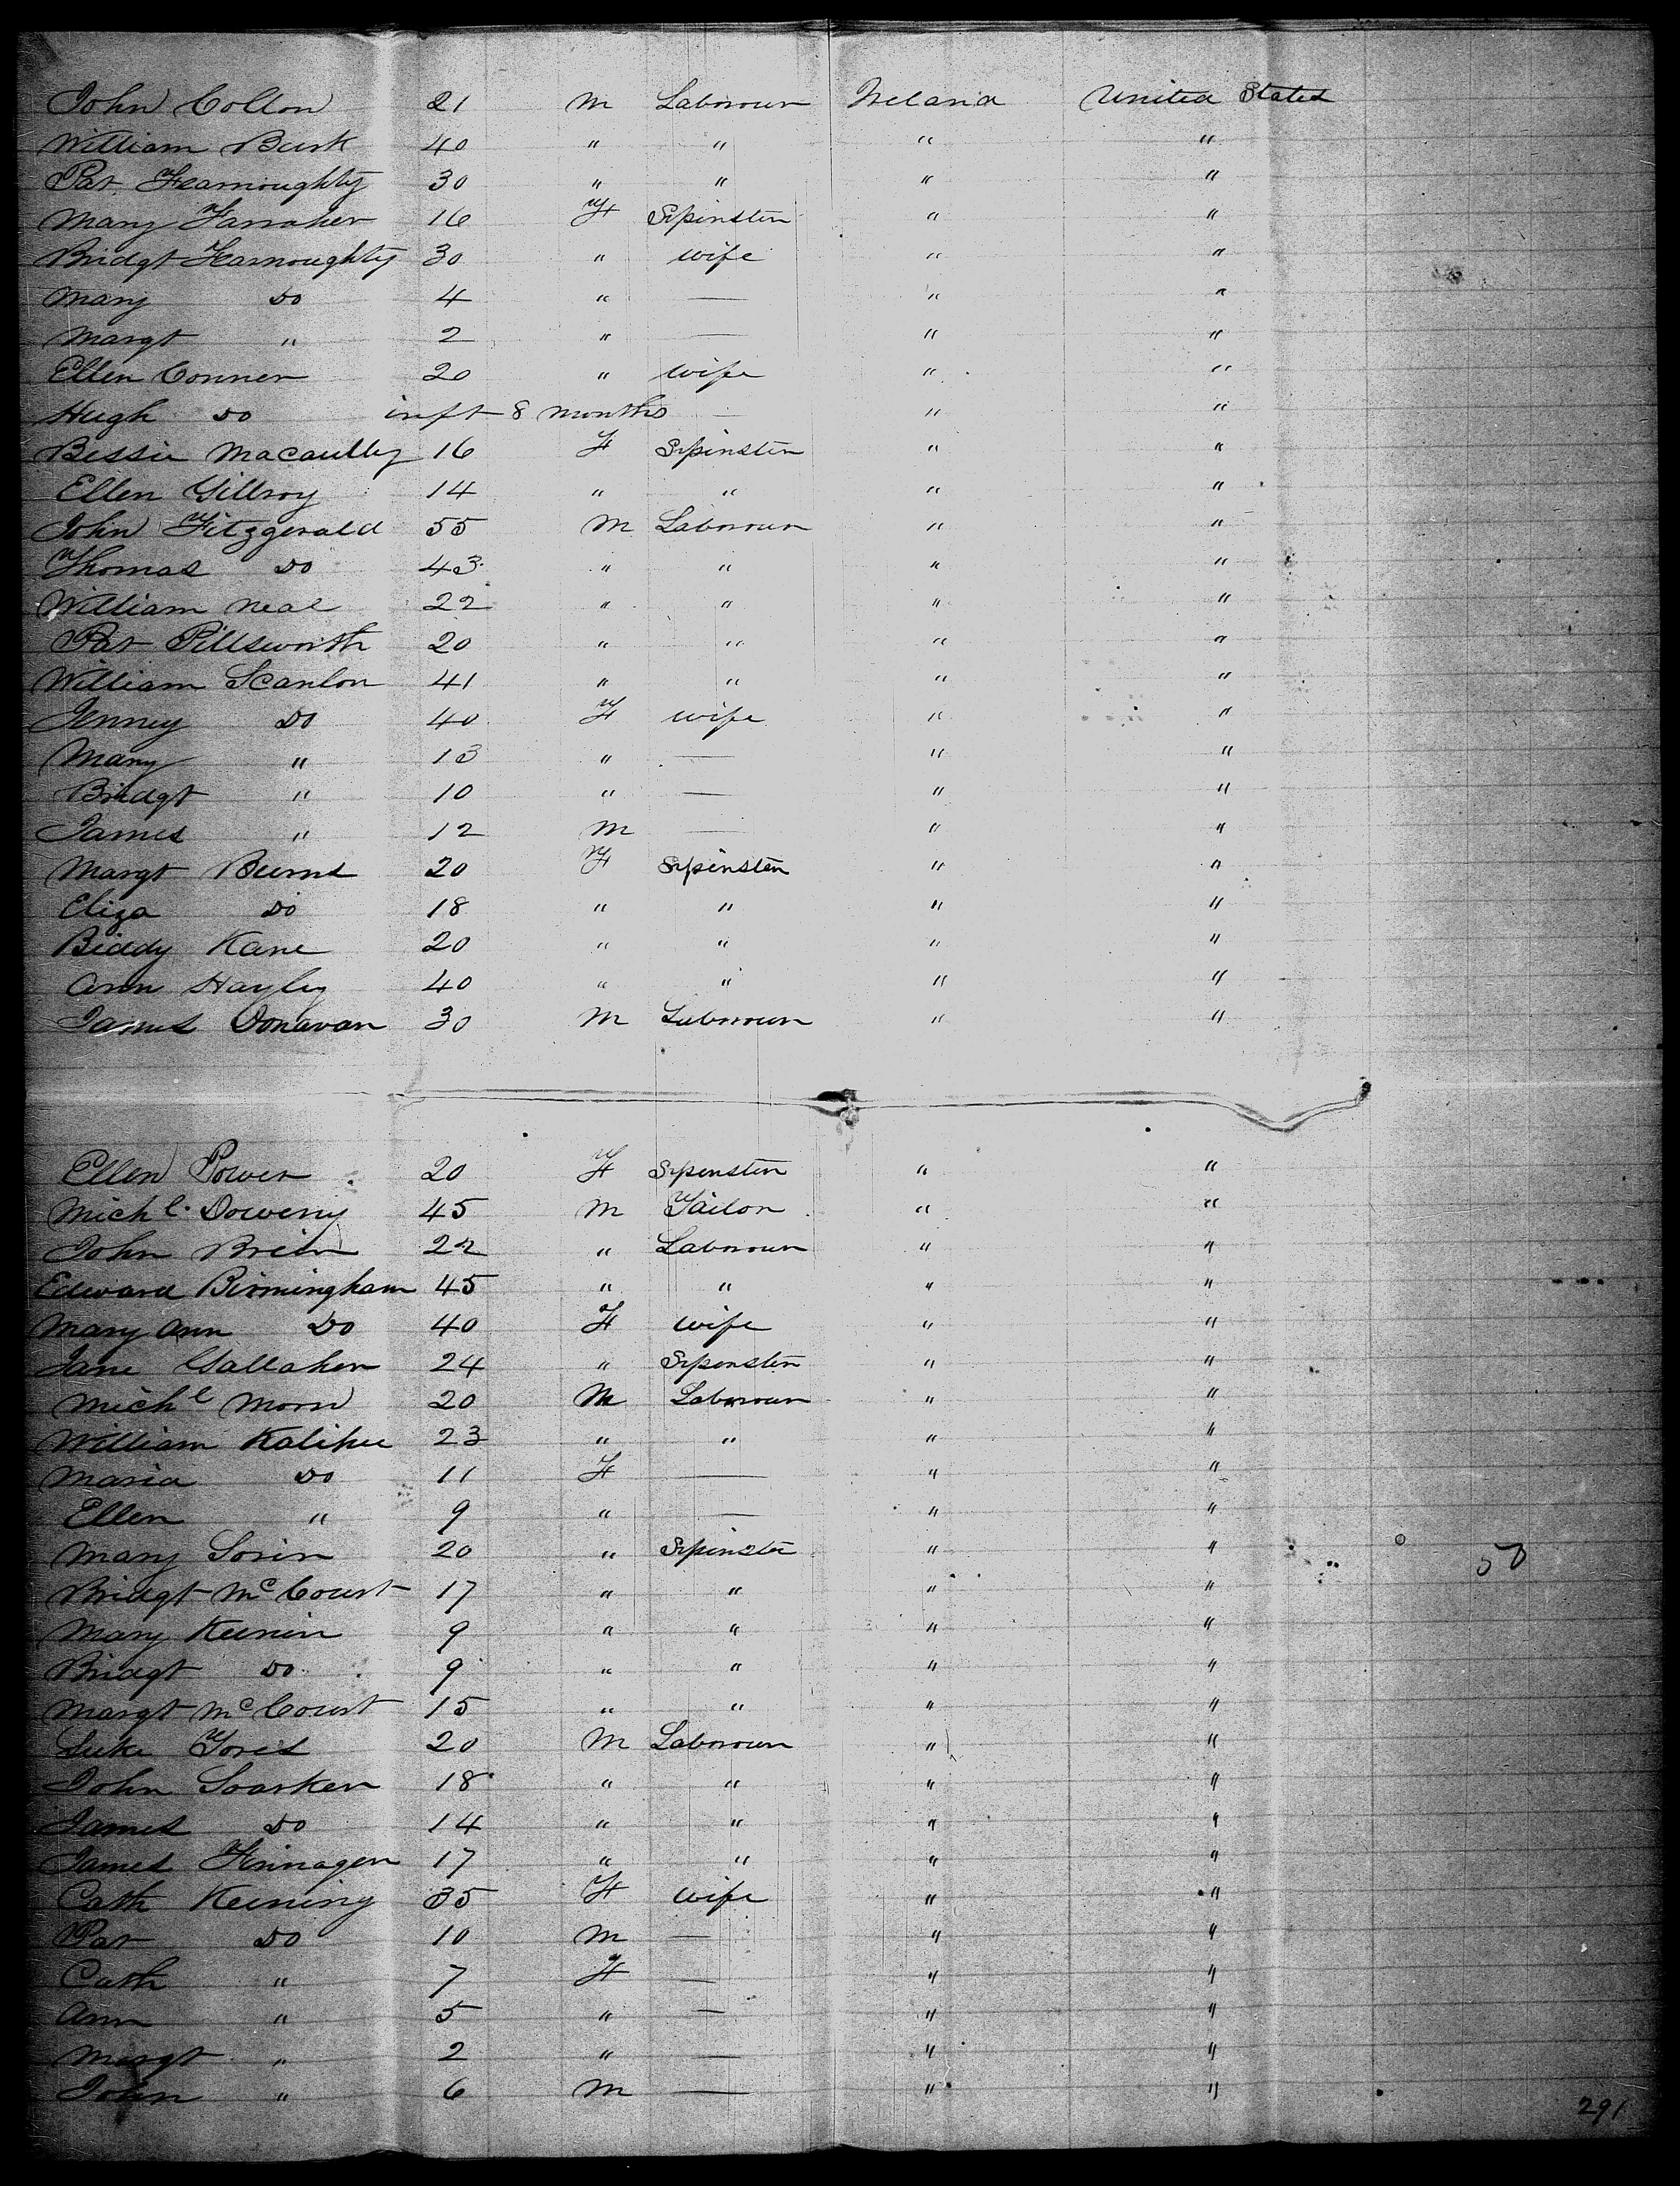 John Colton 21 m Labourer Ireland United States
William Burk 40 " " " "
Pat Fearnoughty 30 " " " "
Mary Farraher 16 F Spinster " "
Bridgt Fearnoughty 30 " wife " "
Mary Do 4 " — " "
Margt " 2 " — " "
Ellen Conner 20 " wife " "
Hugh Do inft 8 months — " "
Bessie Macaulley 16 F Spinster " "
Ellen Gillroy 14 " " " "
John Fitzgerald 55 m Labourer " "
Thomas Do 43 " " " "
William Neal 22 " " " "
Pat Pillsworth 20 " " " "
William Scanlon 41 " " " "
Jenney Do 40 F wife " "
Mary " 13 " — " "
Bridgt " 10 " — " "
James " 12 m — " "
Margt Burns 20 F Spinster " "
Eliza Do 18 " " " "
Biddy Kane 20 " " " "
Ann Hayley 40 " " " "
James Donavan 30 m Labourer " "
Ellen Power 20 F Spinster " "
Michl. Doweny 45 m Tailor " "
John Brien 22 " Labourer " "
Edward Birmingham 45 " " " "
Mary Ann Do 40 F wife " "
Jane Gallaher 24 " Spinster " "
Michl Moore 20 m Labourer " "
William Kalihee 23 " " " "
Maria Do 11 F — " "
Ellen " 9 " — " "
Mary 20 " Spinster " "
Bridgt McCourt 17 " " " "
Mary Keenin 9 " " " "
Bridgt Do 9 " " " "
Margt McCourt 15 " " " "
Luke 20 m Labourer " "
John 18 " " " "
James Do 14 " " " "
James Finnagen 17 " " " "
Cath Keening 35 F wife " "
Pat Do 10 m — " "
Cath " 7 F — " "
Ann " 5 " — " "
Margt " 2 " — " "
John " 6 m — " "
50
291